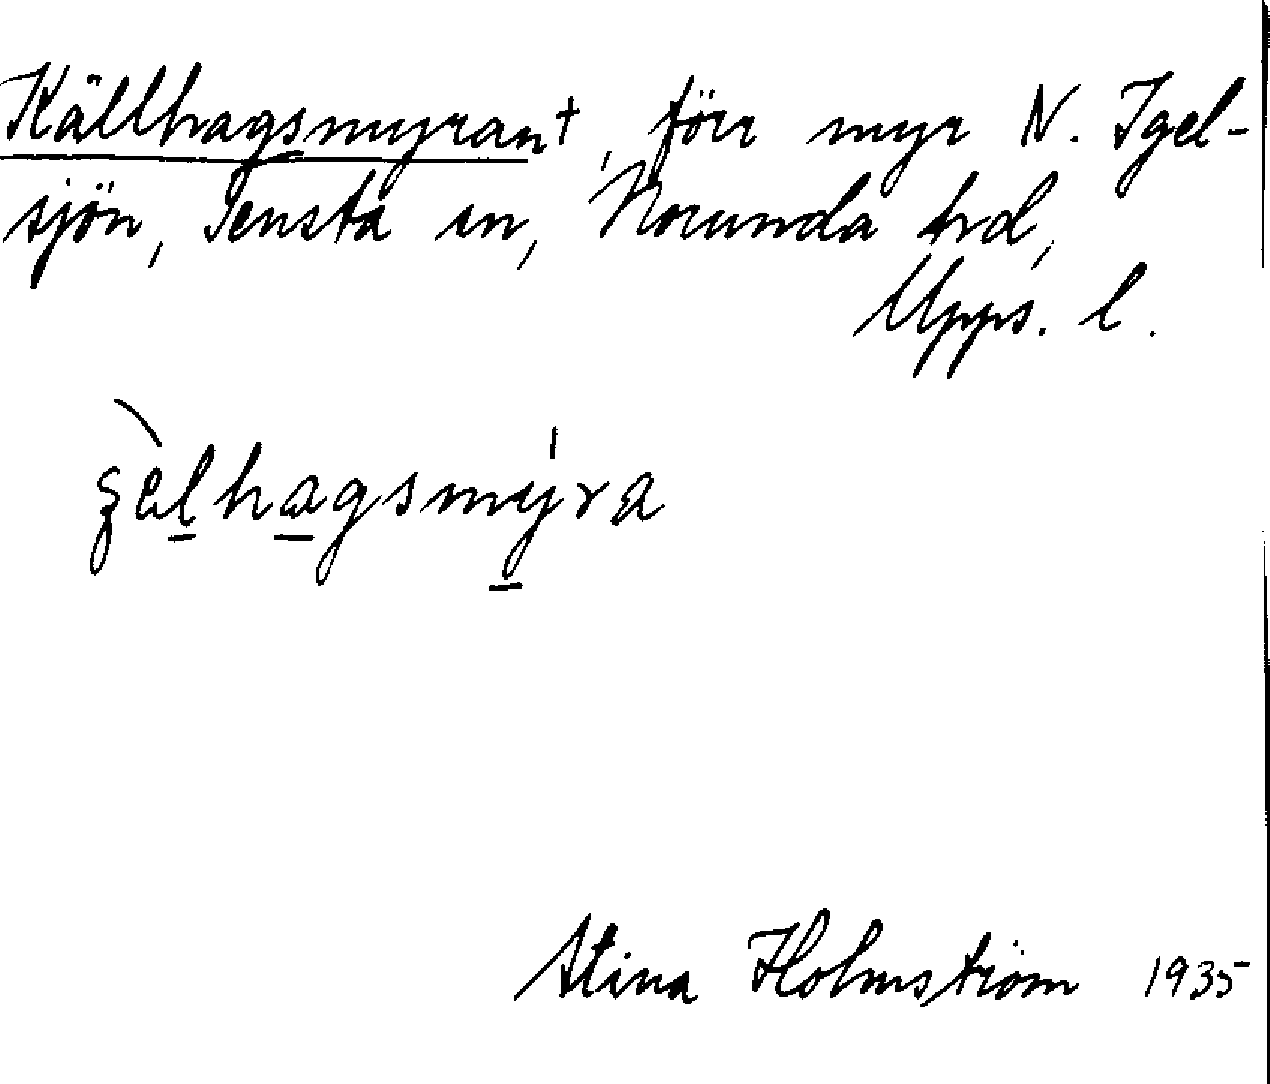 Källhagsmyran†, förr myr N. Igel-
sjön, Tensta sn, Norunda hrd,
Upps. l.
şè̀lhagsmýra
Stina Holmström 1935